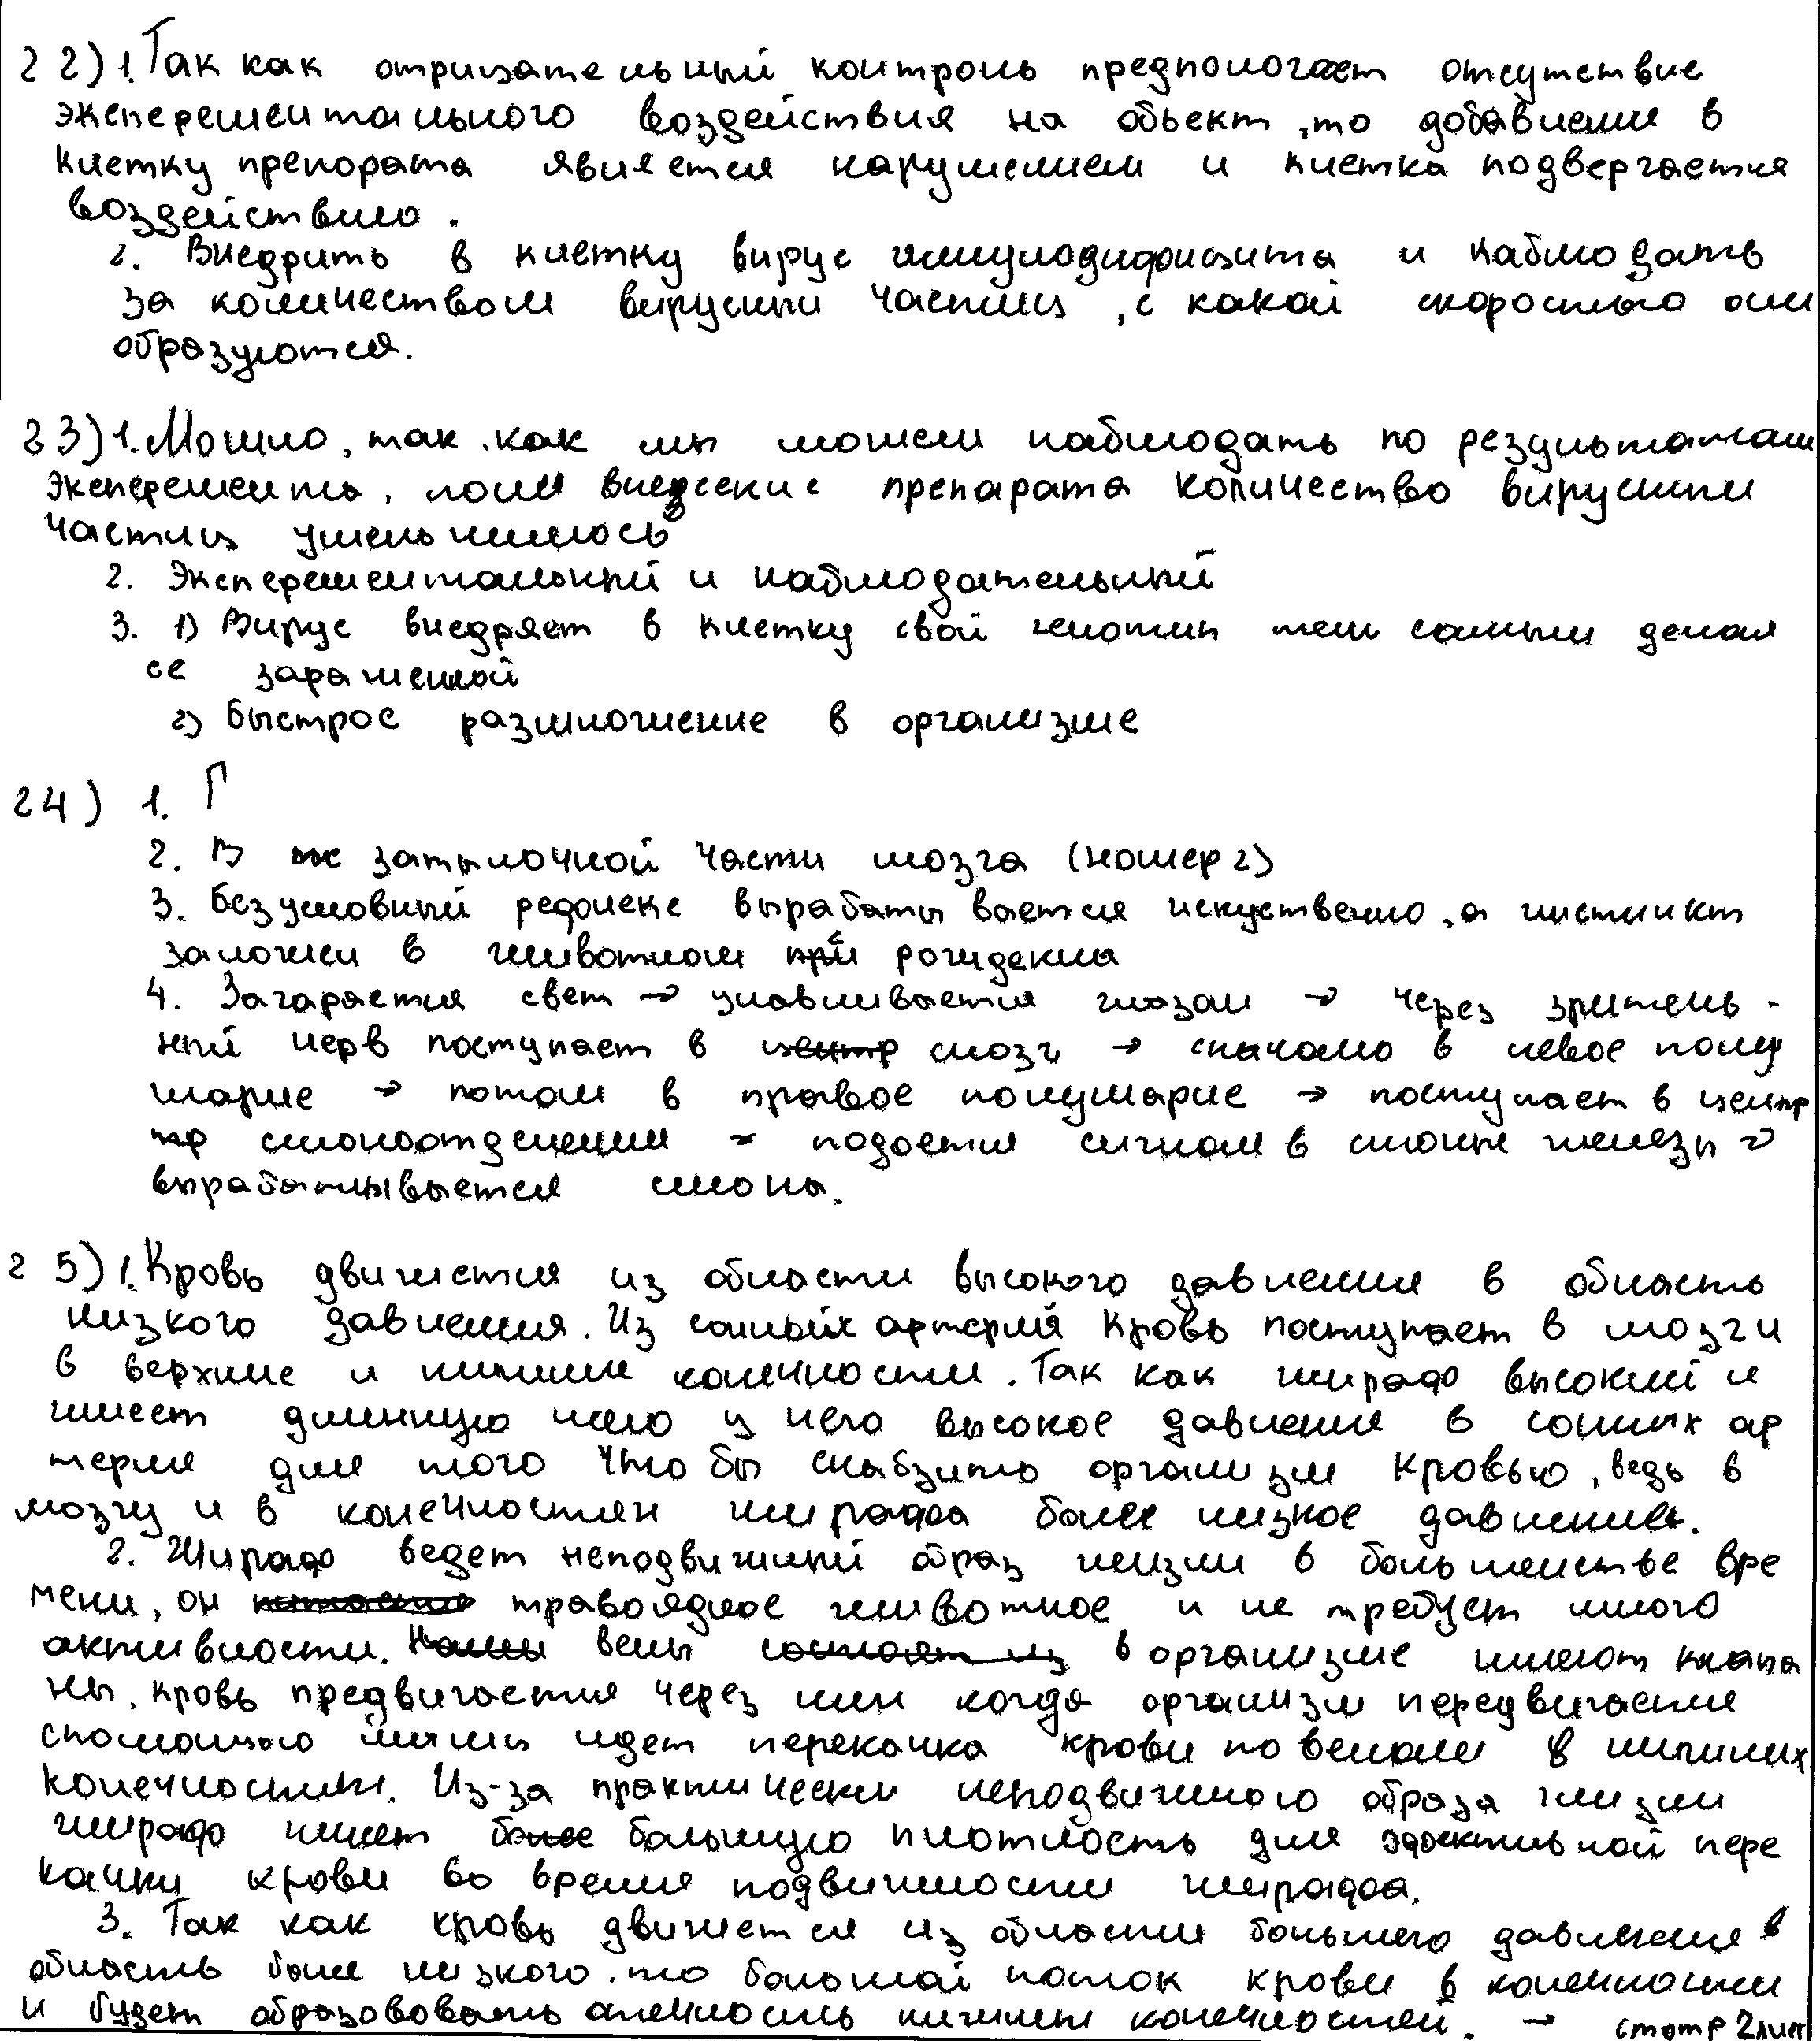 22) 1. Так как отрицательный контроль предпологает отсутствие
эксперементального воздействия на объект, то добавление в
клетку препората является нарушением и клетка подвергается
воздействию.
2. Внедрить в клетку вирус иммунодифицита и наблюдать
за количеством вирусных частиц, с какой скоростью они
образуются.
23) 1. Можно, так как мы можем наблюдать по результатам
эксперемента, после внедрения препарата количество вирусных
частиц уменьшилось
2. Эксперементальный и наблюдательный
3. 1) Вирус внедряет в клетку свой генотип тем самым делая
её зараженной
2) быстрое размножение в организме
24) 1. Г
2. В затылочной части мозга (номер 2)
3. Безусловный рефлекс вырабатывается искуственно, а инстинкт
заложен в животном с рождения
4. Загарается свет → улавливается глазом → через зритель-
ный нерв поступает в мозг → сначало в левое полу
шарие → потом в правое полушарие → поступает в центр
слюноотделения → подается сигнал в слюные железы →
вырабатывывается слюна.
25) 1. Кровь движется из области высокого давления в область
низкого давления. Из сонных артерий кровь поступает в мозг и
в верхние и нижние конечности. Так как жираф высокий и
имеет длинную шею у него высокое давление в сонных ар
терия для того что бы снабзить организм кровью, ведь в
мозгу и в конечностях жирафа более низкое давление.
2. Жираф ведет неподвижный образ жизни в большенстве вре
мени, он травоядное животное и не требует много
активности. вены в организме имеют клапа
ны, кровь предвигается через них когда организм передвигается
спомощью мышц идет перекачка крови по венам в нижних
конечностях. Из-за практически неподвижного образа жизни
жираф имеет большую плотность для эффективной пере
качки крови во время подвижности жирафа.
3. Так как кровь движется из области большего давления в
область более низкого, то большой поток крови в конечности
и будет образововать отечность нижних конечностей. → смотр 2лист